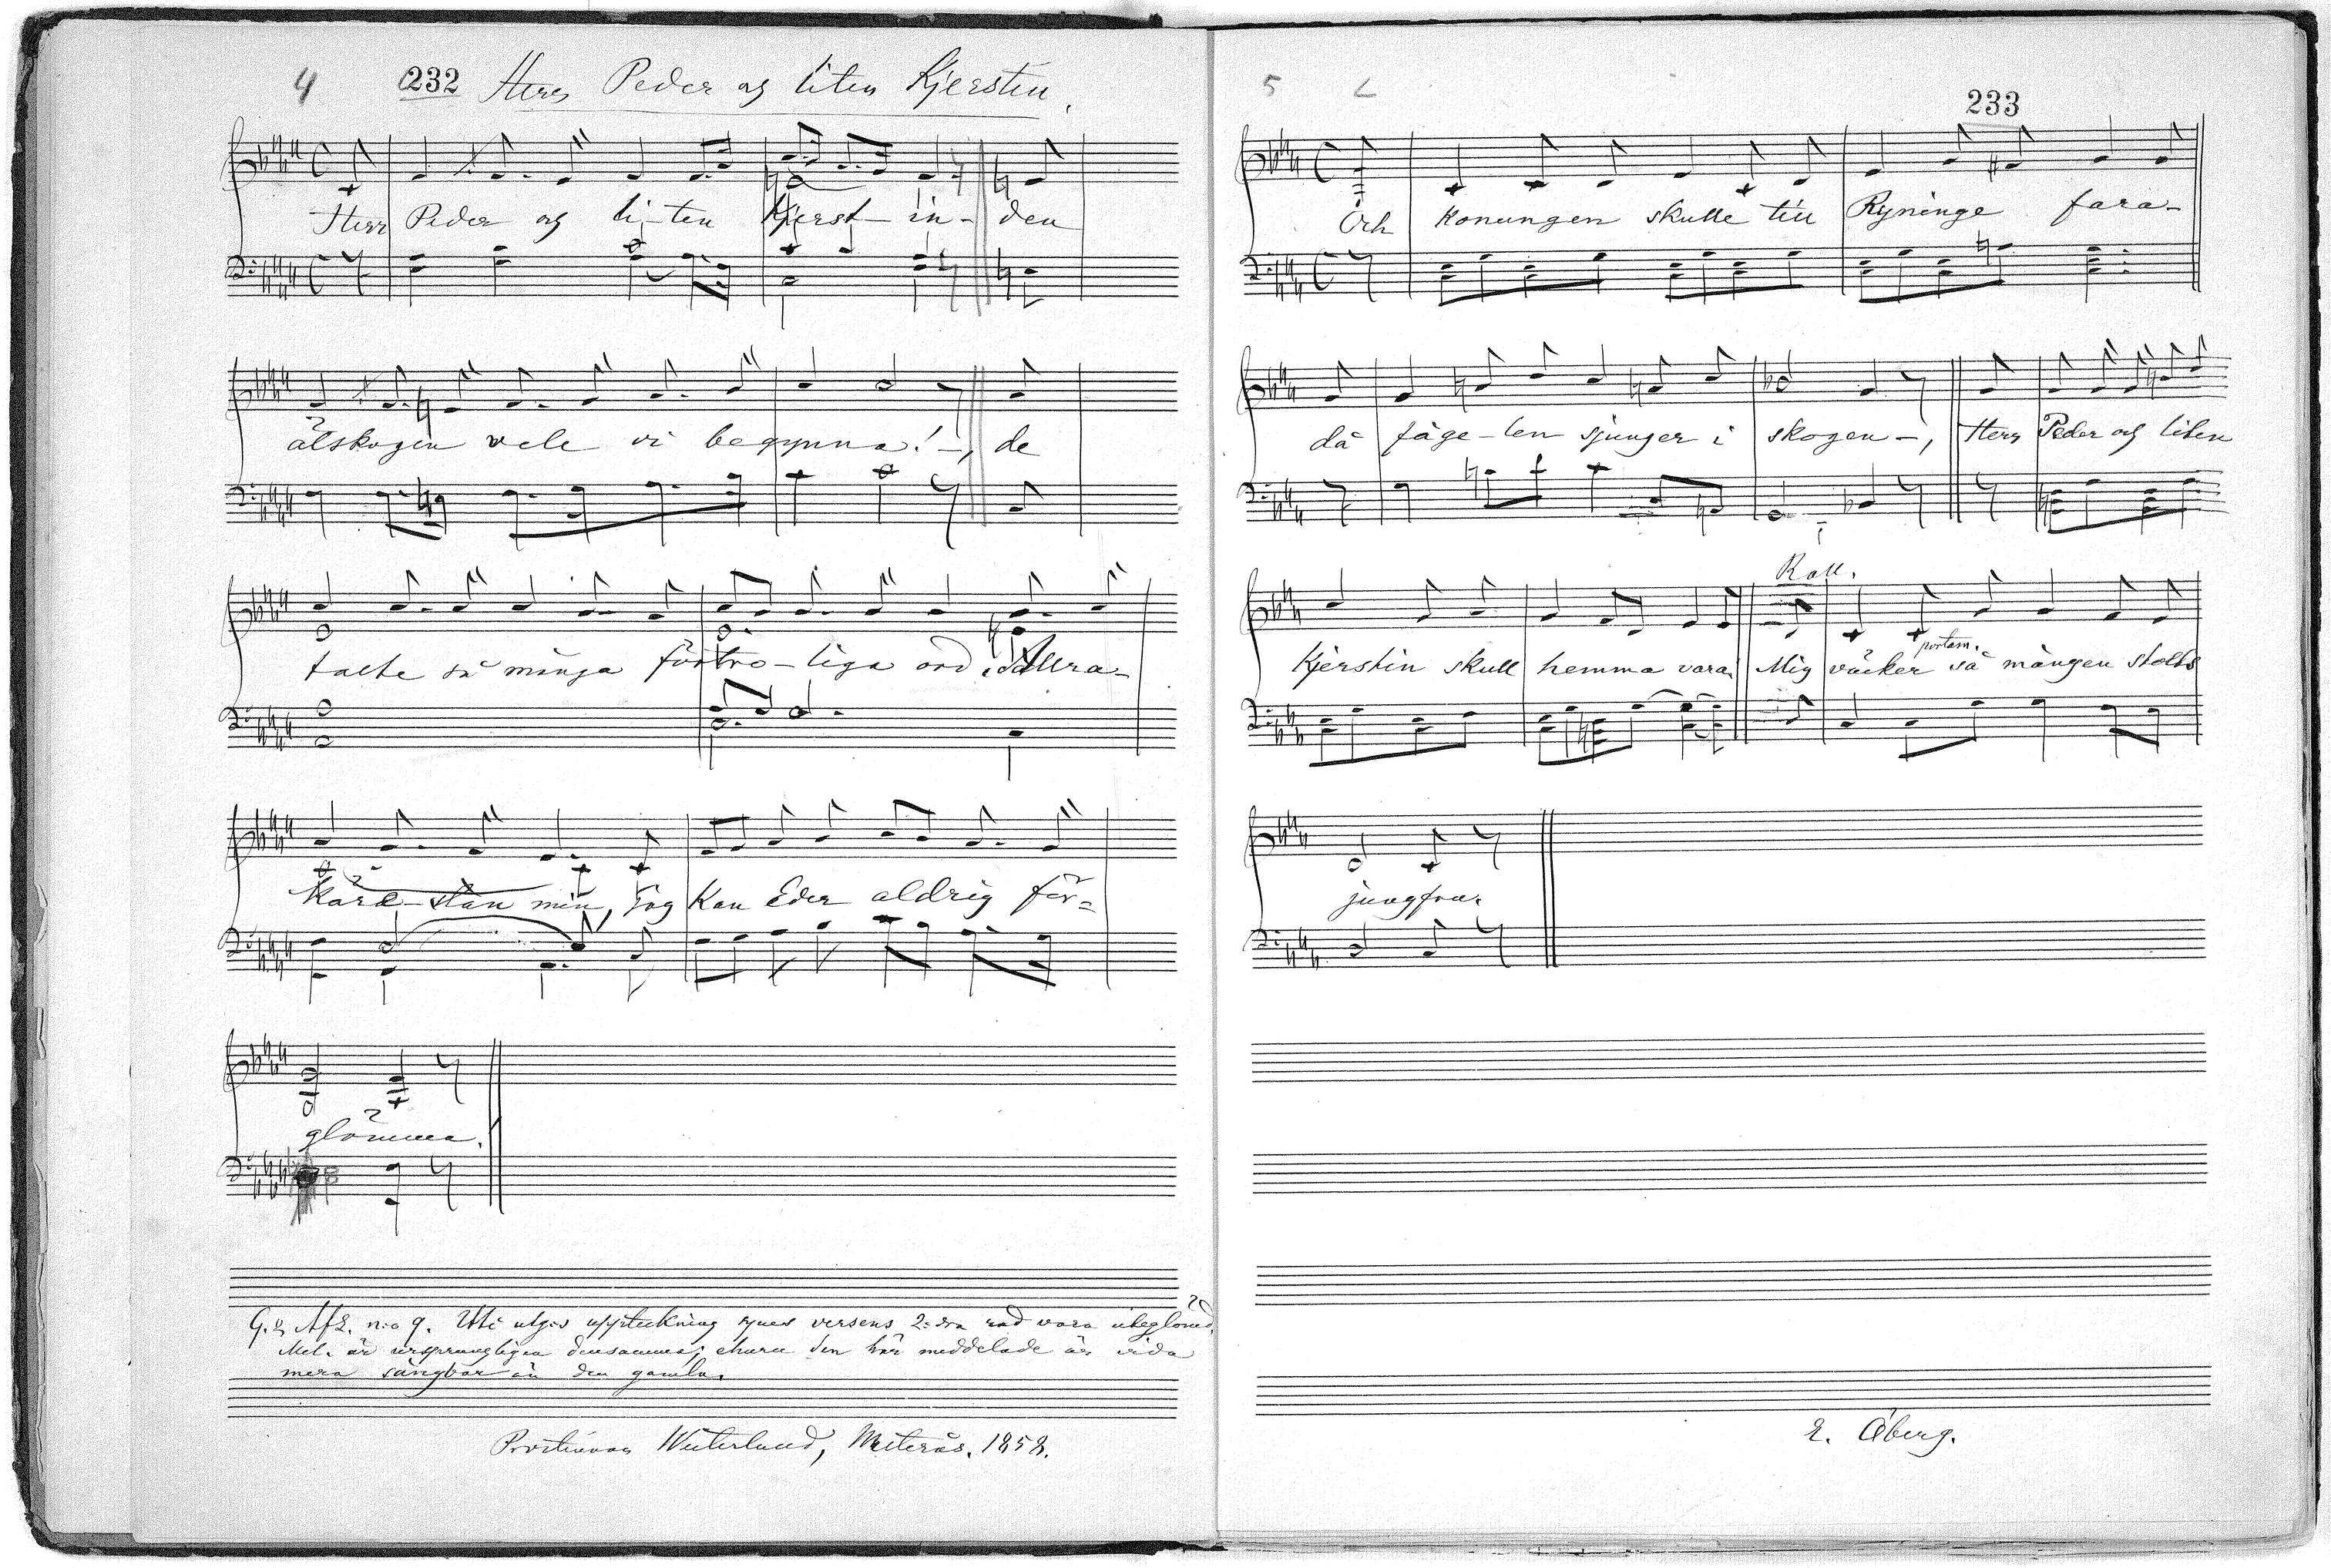 4 232 Herr Peder og liten Kjersten.
Herr Peder og li-ten Kjerst-in- den
älskogen vele vi begynna!-, de
talte så många förtro-liga ord. Allra-
Käre-stan min, Jag Kan Eder aldrig för=
glömma.
G. & Afz. n:o 9. Uti utg:s uppteckning synes versens 2:dra rad vara
Mel. är ursprungligen densamma, ehuru den här meddelade är vida
mera sångbar än den gamla.
Prostinnan Winterlund, Westerås. 1858.
5
233
Och konungen skulle till Ryninge fara-
då fäge-len sjunger i skogen-, Herr Peder og liten
Rall.
Kjerstin skull hemma vara. Mig väcker så mången stolts
portam.
jungfru.
E. Åberg.